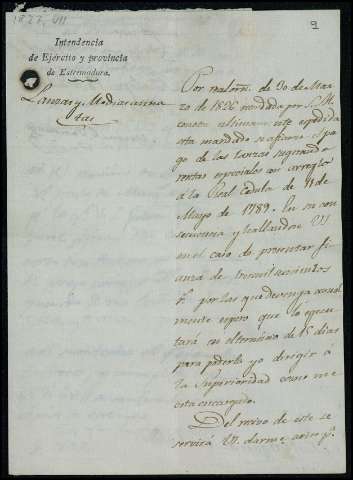 1827, VII
9
Intendencia
de Ejército y provincia
de Estremadura.
Lanzas y Medias anna
tas
Por real orn. de 30 de Mar
zo de 1826 mandada por S. M.
este espedida
esta mandado se afiance el pa
go de las lanzas
rentas especiales con arreglo
á la Real Cedula de de
Mayo de 1789. En su con
secuencia y hallandose V
en el caso de presentar fi
anza de tres mil seiscientos
r.s por las que devenga anual
mente espero que lo ejecu
tará en el termino de 15 dias
para poderla yo dirigir á
la Superioridad como me
esta encargado.
Del recivo de este se
servirá V. darme aviso p.a